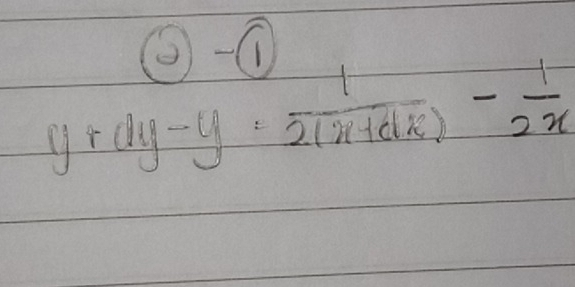 ② - ①
y + dy - y = 1/2(x+dx) - 1/2x